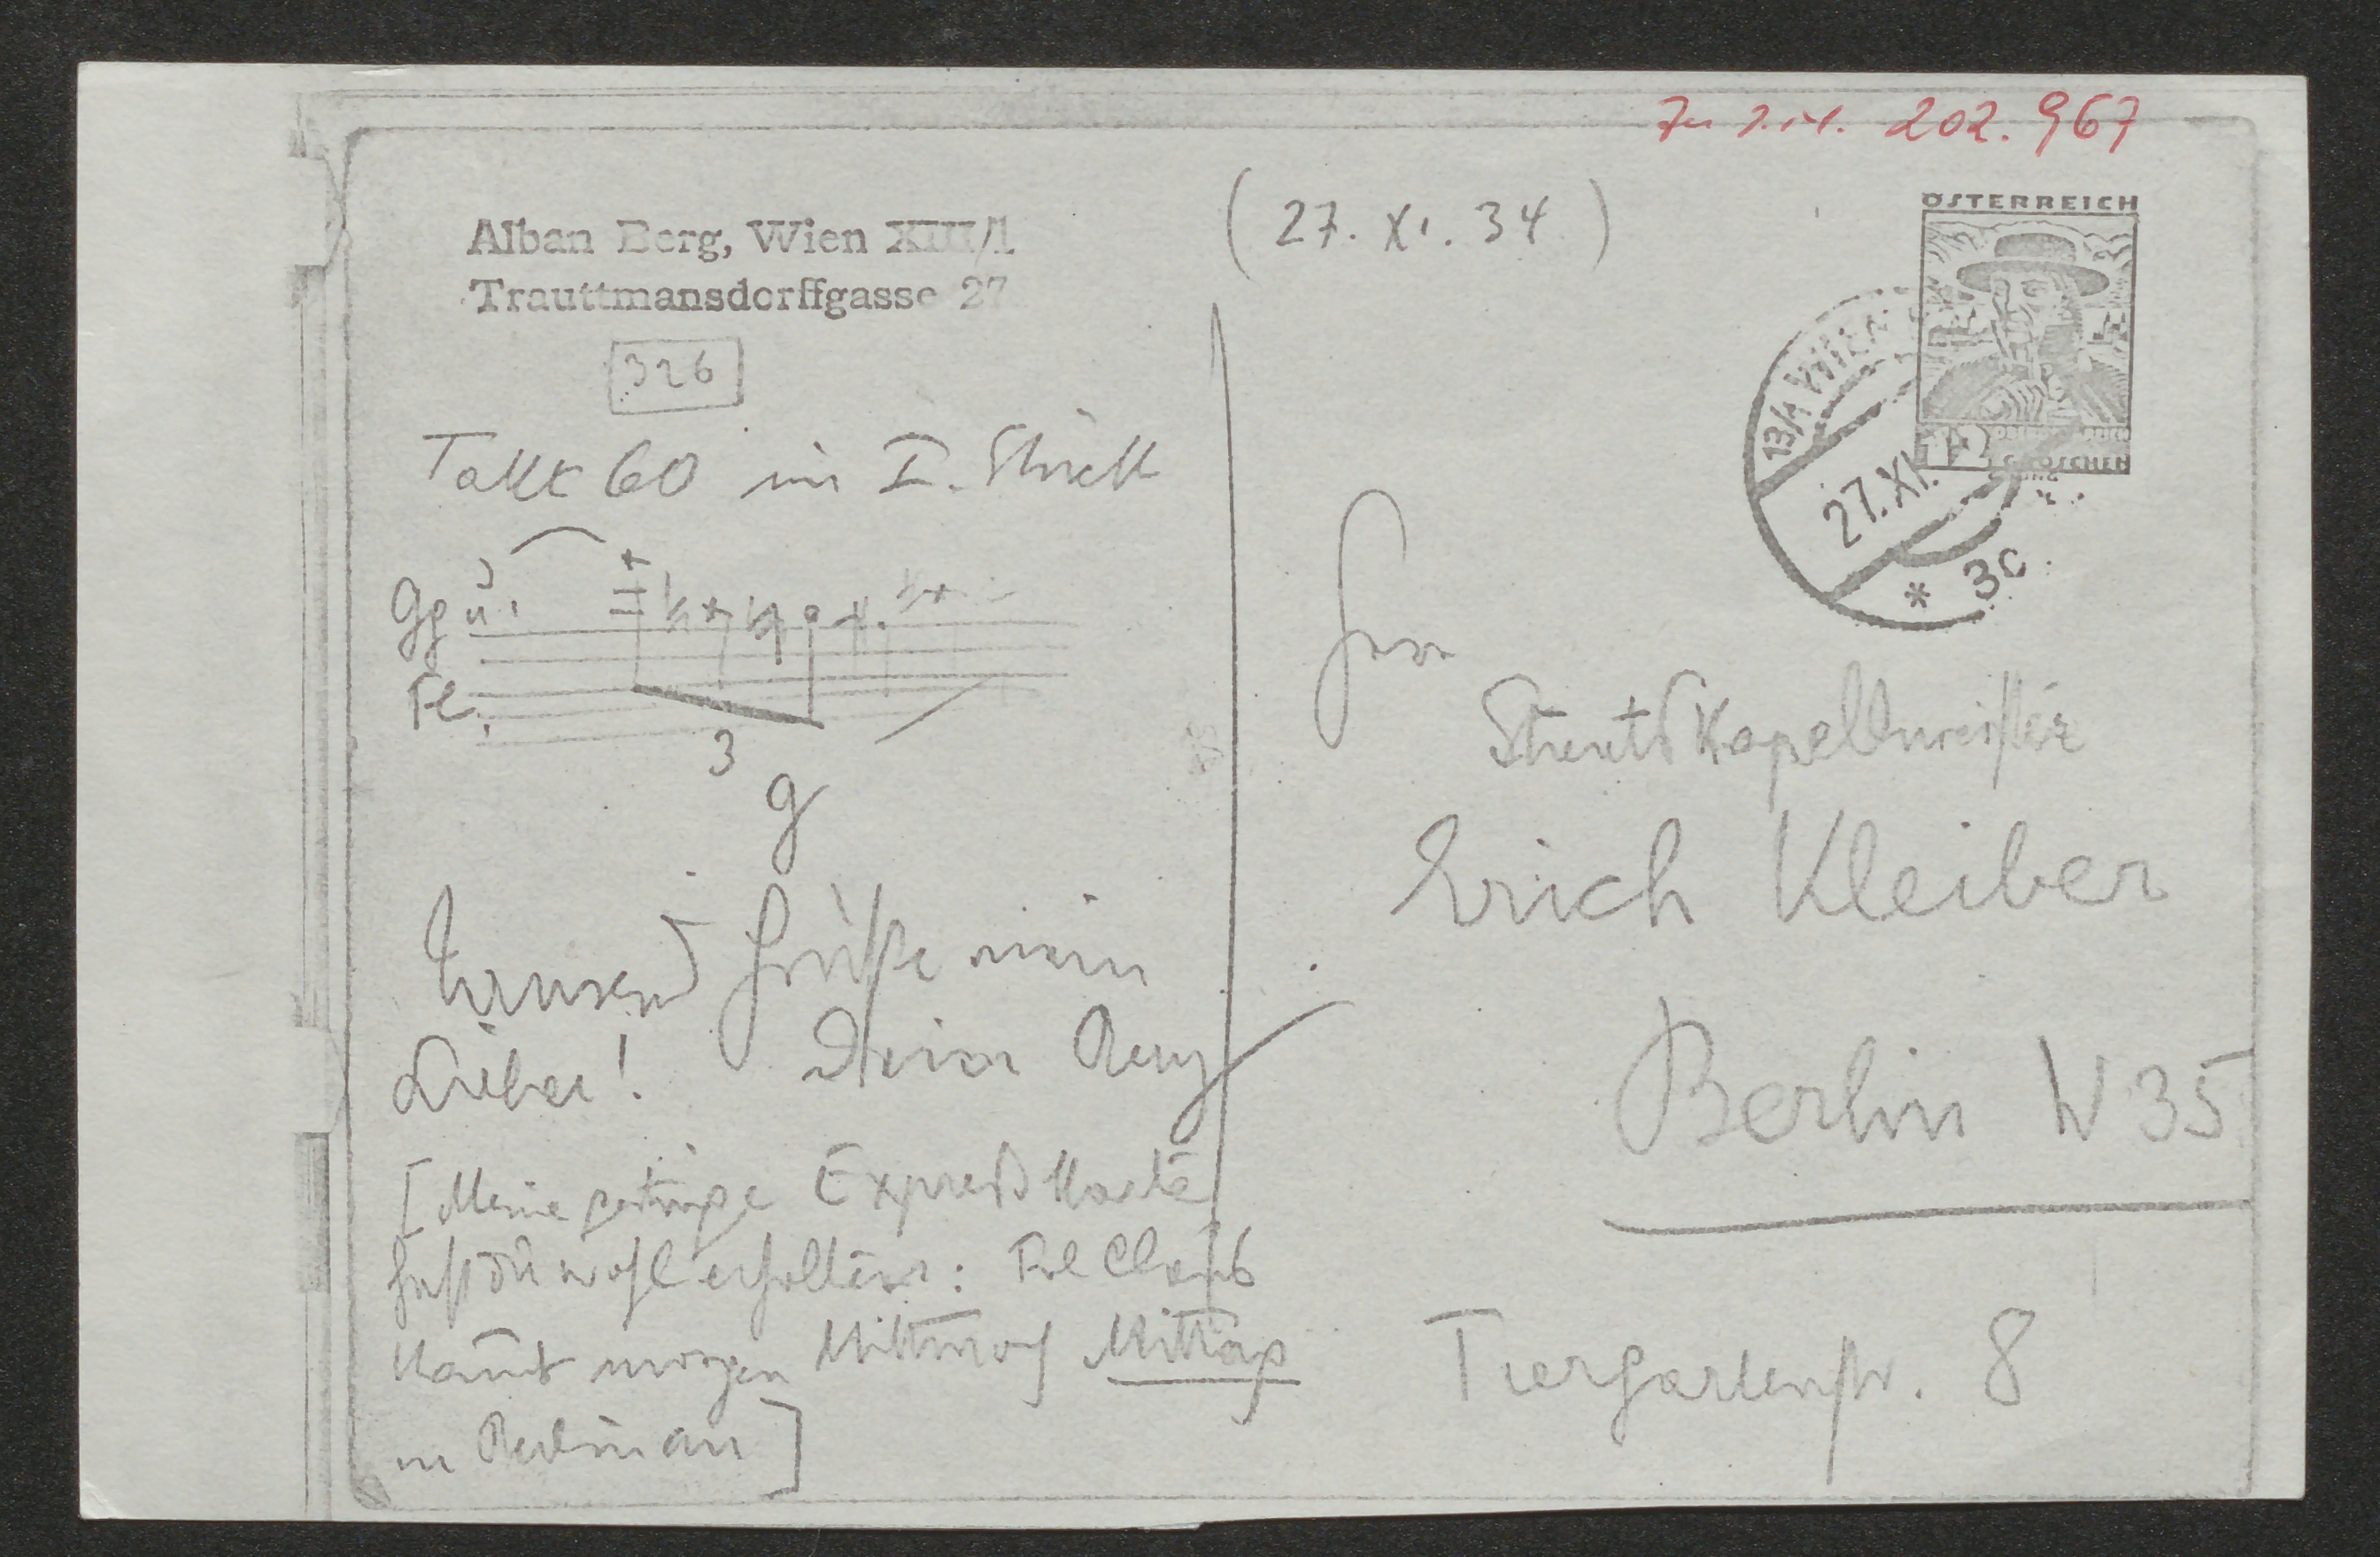 202.967
Alban Berg, Wien XIII/1
Trauttmansdorffgasse 27
(27. XI. 34)
326
ÖSTERREICH
GROSCHEN
13/1 WIEN
27.XI.
* 3c
Takt 60 im I. Stück
Gg u.
Fl.
3
g
Tausend Grüße mein
Lieber! Dein Berg
[Meine gestrige Expreß Karte
hast du wohl erhalten:
kommt morgen Mittwoch Mittag
in Berlin an]
Herrn
Staats Kapellmeister
Erich Kleiber
Berlin W 35
Tiergartenstr. 8